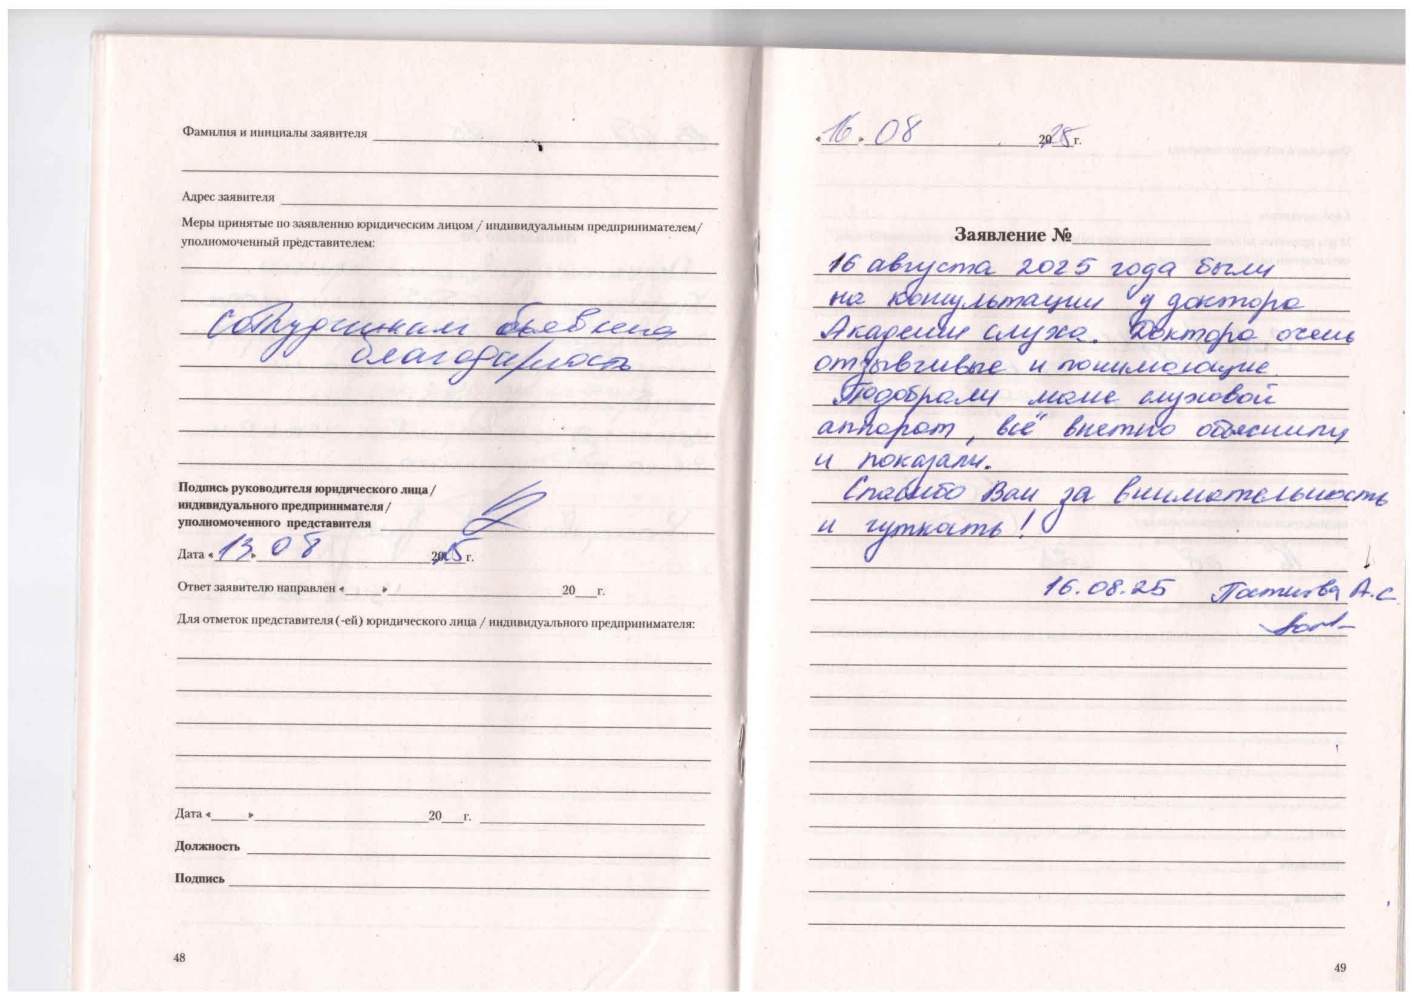 Фамилия и инициалы заявителя
Адрес заявителя
Меры принятые по заявлению юридическим лицом / индивидуальным предпринимателем/
уполномоченный представителем:
Сотрудникам объявлена
благодарность
Подпись руководителя юридического лица /
индивидуального предпринимателя /
уполномоченного представителя
Дата «13» 08 2025 г.
Ответ заявителю направлен «___» 20___г.
Для отметок представителя (-ей) юридического лица / индивидуального предпринимателя:
Дата «___» 20___г.
Должность
Подпись
48
«16» 08 2025 г.
Заявление №
16 августа 2025 года были
на консультации у доктора
Академии слуха. Доктора очень
отзывчивые и понимающие.
Подобрали маме слуховой
аппарат, всё внятно объяснили
и показали.
Спасибо Вам за внимательность
и чуткость!
16.08.25 А.С.
49